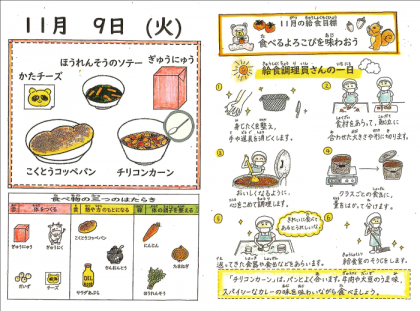 11月 9日 (火)
ほうれんそうのソテー
ぎゅうにゅう
かたチーズ
こくとうコッペパン
チリコンカーン
食べ物の三つのはたらき
赤 体をつくる
黄 熱や力のもとになる
緑 体の調子を整える
ぎゅうにゅう
こくとうコッペパン
にんじん
かたくりこ
たまねぎ
だいず
チーズ
サラダあぶら
ほうれんそう
11月の給食目標
食べるよろこびを味わおう
給食調理員さんの一日
①
身じたくを整え、
手や道具を消どくします。
②
食材をあらって、献立に
合わせた大きさや形に切ります。
③
おいしくなるように、
心をこめて調理します。
④
クラスごとの食缶に、
量をはかって分けます。
⑤
きれいに食べて
あるとうれしいな。
返ってきた食器や食缶などをあらいます。
⑥
給食室のそうじをします。
「チリコンカーン」は、パンとよく合います。牛肉や大豆のうま味、
スパイシーなカレーの味を味わいながら食べましょう。